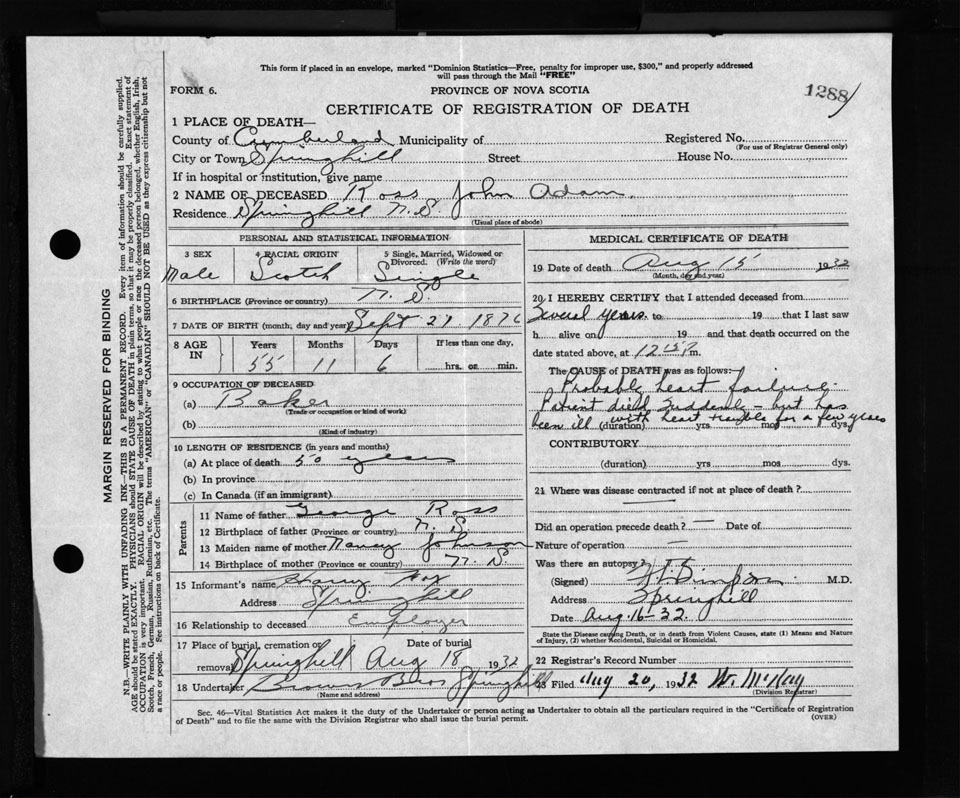 This form if placed in an envelope, marked "Dominion Statistics—Free, penalty for improper use, $300," and properly addressed
will pass through the Mail "FREE"
FORM 6.
PROVINCE OF NOVA SCOTIA
1288
CERTIFICATE OF REGISTRATION OF DEATH
1 PLACE OF DEATH—
County of Cumberland Municipality of Registered No.
(For use of Registrar General only)
City or Town Springhill Street House No.
If in hospital or institution, give name
2 NAME OF DECEASED Ross John Adam
Residence Springhill N.S.
(Usual place of abode)
PERSONAL AND STATISTICAL INFORMATION
3 SEX 4 RACIAL ORIGIN 5 Single, Married, Widowed or Divorced. (Write the word)
Male Scotch Single
6 BIRTHPLACE (Province or country) N.S.
7 DATE OF BIRTH (month, day and year) Sept 27 1876
8 AGE IN Years Months Days If less than one day,
55 11 6 hrs. or min.
9 OCCUPATION OF DECEASED
(a) Baker
(Trade or occupation or kind of work)
(b)
(Kind of industry)
10 LENGTH OF RESIDENCE (in years and months)
(a) At place of death 50 years
(b) In province
(c) In Canada (if an immigrant)
Parents
11 Name of father George Ross
12 Birthplace of father (Province or country) N.S.
13 Maiden name of mother Nancy Johnson
14 Birthplace of mother (Province or country) N.S.
15 Informant's name Harry
Address Springhill
16 Relationship to deceased Employer
17 Place of burial, cremation or removal Date of burial
Springhill Aug 18 1932
18 Undertaker Browns Bros Springhill
(Name and address)
MEDICAL CERTIFICATE OF DEATH
19 Date of death Aug 15 1932
(Month, day and year)
20 I HEREBY CERTIFY that I attended deceased from
Several years. to 19 that I last saw
h alive on 19 and that death occurred on the
date stated above, at 12 15 P m.
The CAUSE of DEATH was as follows:
Probably heart failure.
Patient died suddenly - but has
been ill with heart trouble for a few years
(duration) yrs mos dys
CONTRIBUTORY
(duration) yrs mos dys.
21 Where was disease contracted if not at place of death? —
Did an operation precede death? — Date of
Nature of operation —
Was there an autopsy?
(Signed) Simpson M.D.
Address Springhill
Date Aug. 16 - 32.
State the Disease causing Death, or in death from Violent Causes, state (1) Means and Nature
of Injury, (2) whether Accidental, Suicidal or Homicidal.
22 Registrar's Record Number
23 Filed Aug 20, 1932 W. McKay
(Division Registrar)
Sec. 46—Vital Statistics Act makes it the duty of the Undertaker or person acting as Undertaker to obtain all the particulars required in the "Certificate of Registration
of Death" and to file the same with the Division Registrar who shall issue the burial permit.
(OVER)
MARGIN RESERVED FOR BINDING
N.B.—WRITE PLAINLY WITH UNFADING INK—THIS IS A PERMANENT RECORD. Every item of information should be carefully supplied.
AGE should be stated EXACTLY. PHYSICIANS should STATE CAUSE OF DEATH in plain terms, so that it may be properly classified. Exact statement of
OCCUPATION is very important. RACIAL ORIGIN will be described by stating to what people or race the deceased person belonged, whether English, Irish,
Scotch, French, German, Russian, Ruthenian, etc. The terms "AMERICAN" or "CANADIAN" SHOULD NOT BE USED as they express citizenship but not
a race or people. See instructions on back of Certificate.